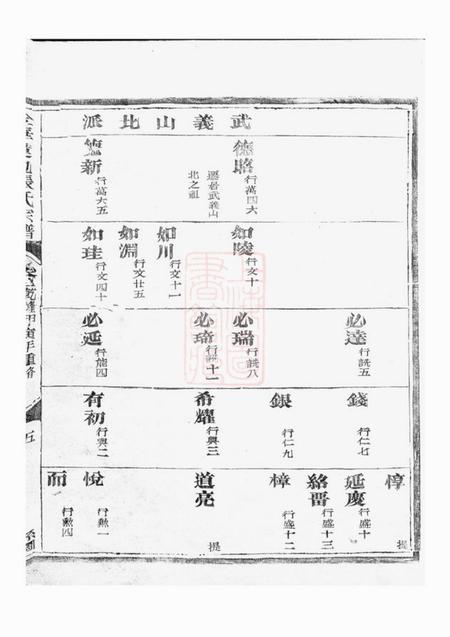 武義山北派
德賂 行萬四六
遷居武義山
北之祖
德新 行萬六五
如陵 行文十
如川 行文十一
如淵 行文廿五
如珪 行文四十
必達 行詵五
必瑞 行詵八
必琦 行詵十一
必延 行能四
錢 行仁七
銀 行仁九
希耀 行興三
有初 行興二
惇
延慶 行盛十
絡晋 行盛十三
樟 行盛十二
道亮
悅 行勲一
而 行勲四
提
提
五